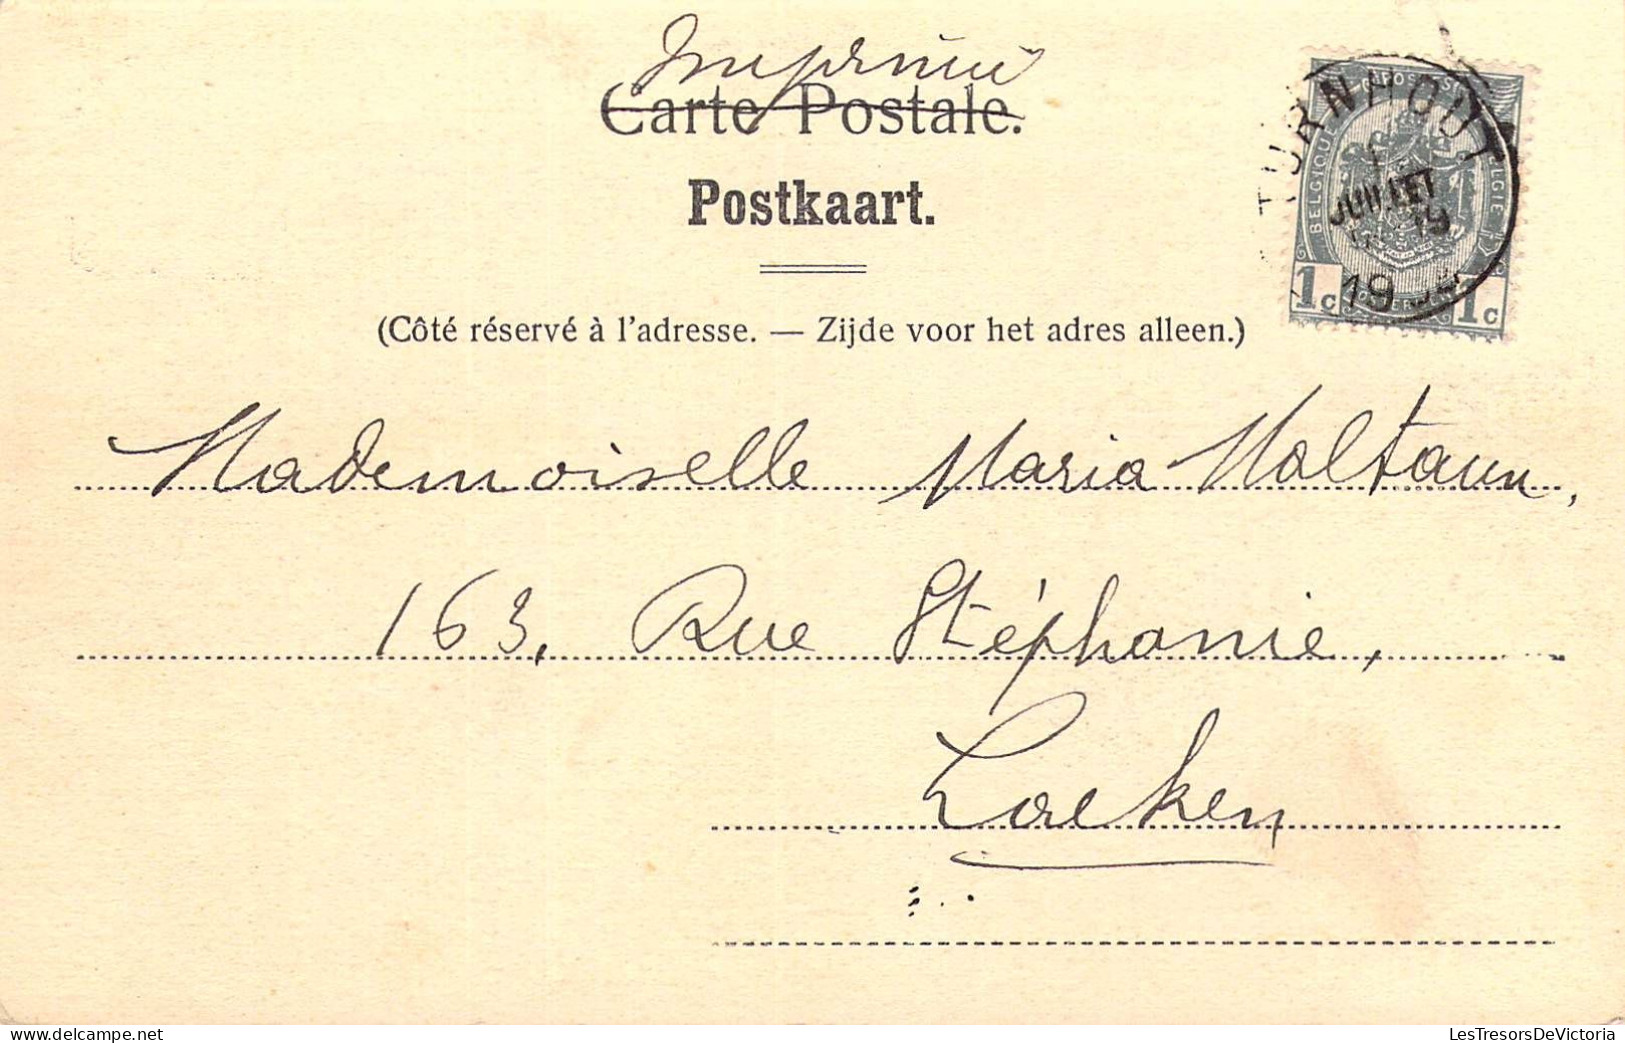 Imprimé
Carte Postale.
Postkaart.
(Côté réservé à l'adresse. — Zijde voor het adres alleen.)
TURNHOUT
1
JUILLET
19
19
BELGIQUE
POSTES
1c 1c
Mademoiselle Maria
163, Rue Stéphanie,
Laeken
www.delcampe.net
LesTresorsDeVictoria